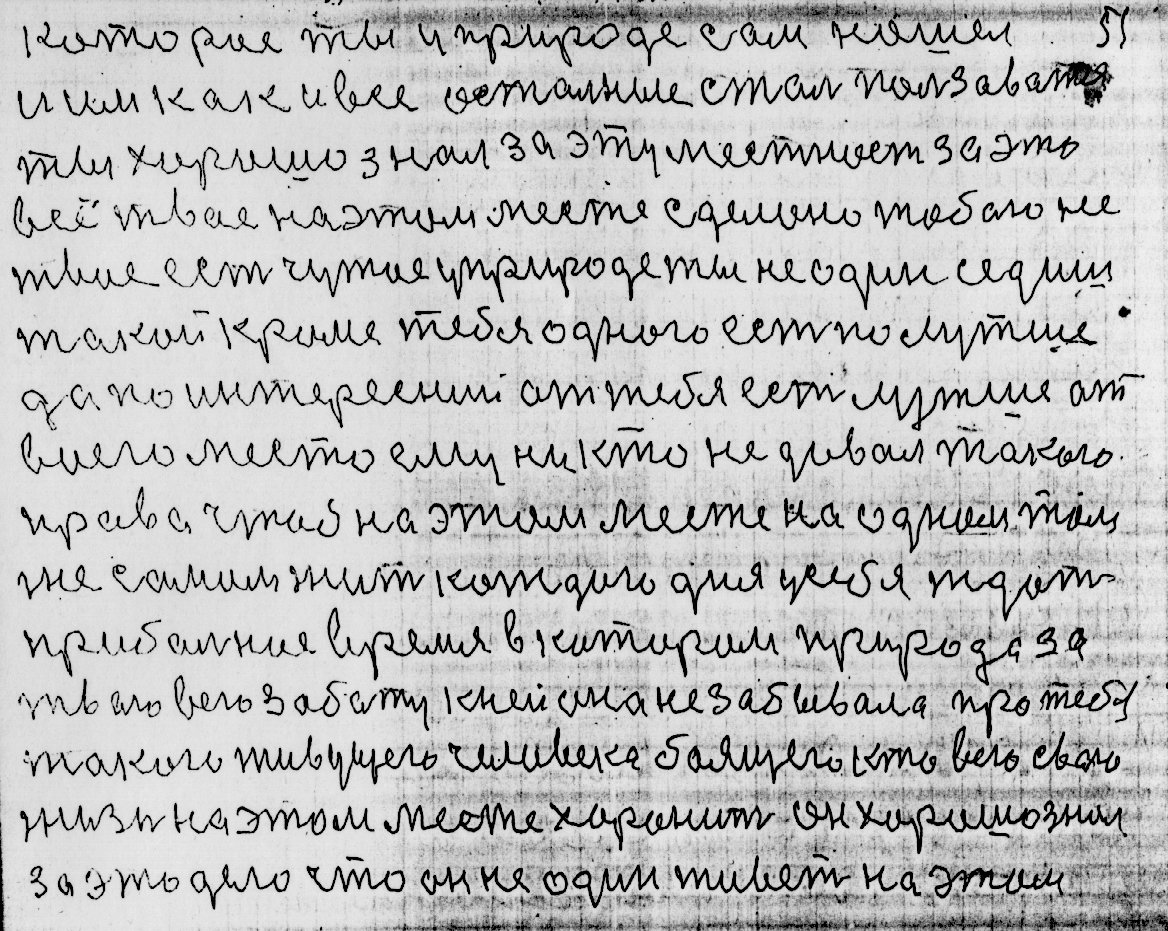 которое ты у природе сам нашел 57
и им как и все остальные стал ползаватся
ты хорошо знал за эту местност за это
всё твое на этом месте сделоно тобою не
твое ест чужое у природе ты не один седиш
такой кроме тебя одного ест полутше
да поинтересний от тебя ест лузтше от
воего место ему никто не давал такого
права чтоб на этом месте на одном том
же самим жит кождого дня у себя ждат
прибалное время в котором природа за
тваю всю забату к ней она не забывала про тебя
такого живущего человека боящего кто всю сваю
жизн на этом месте хоронит он хорошо знал
за это дело что он не один живёт на этом